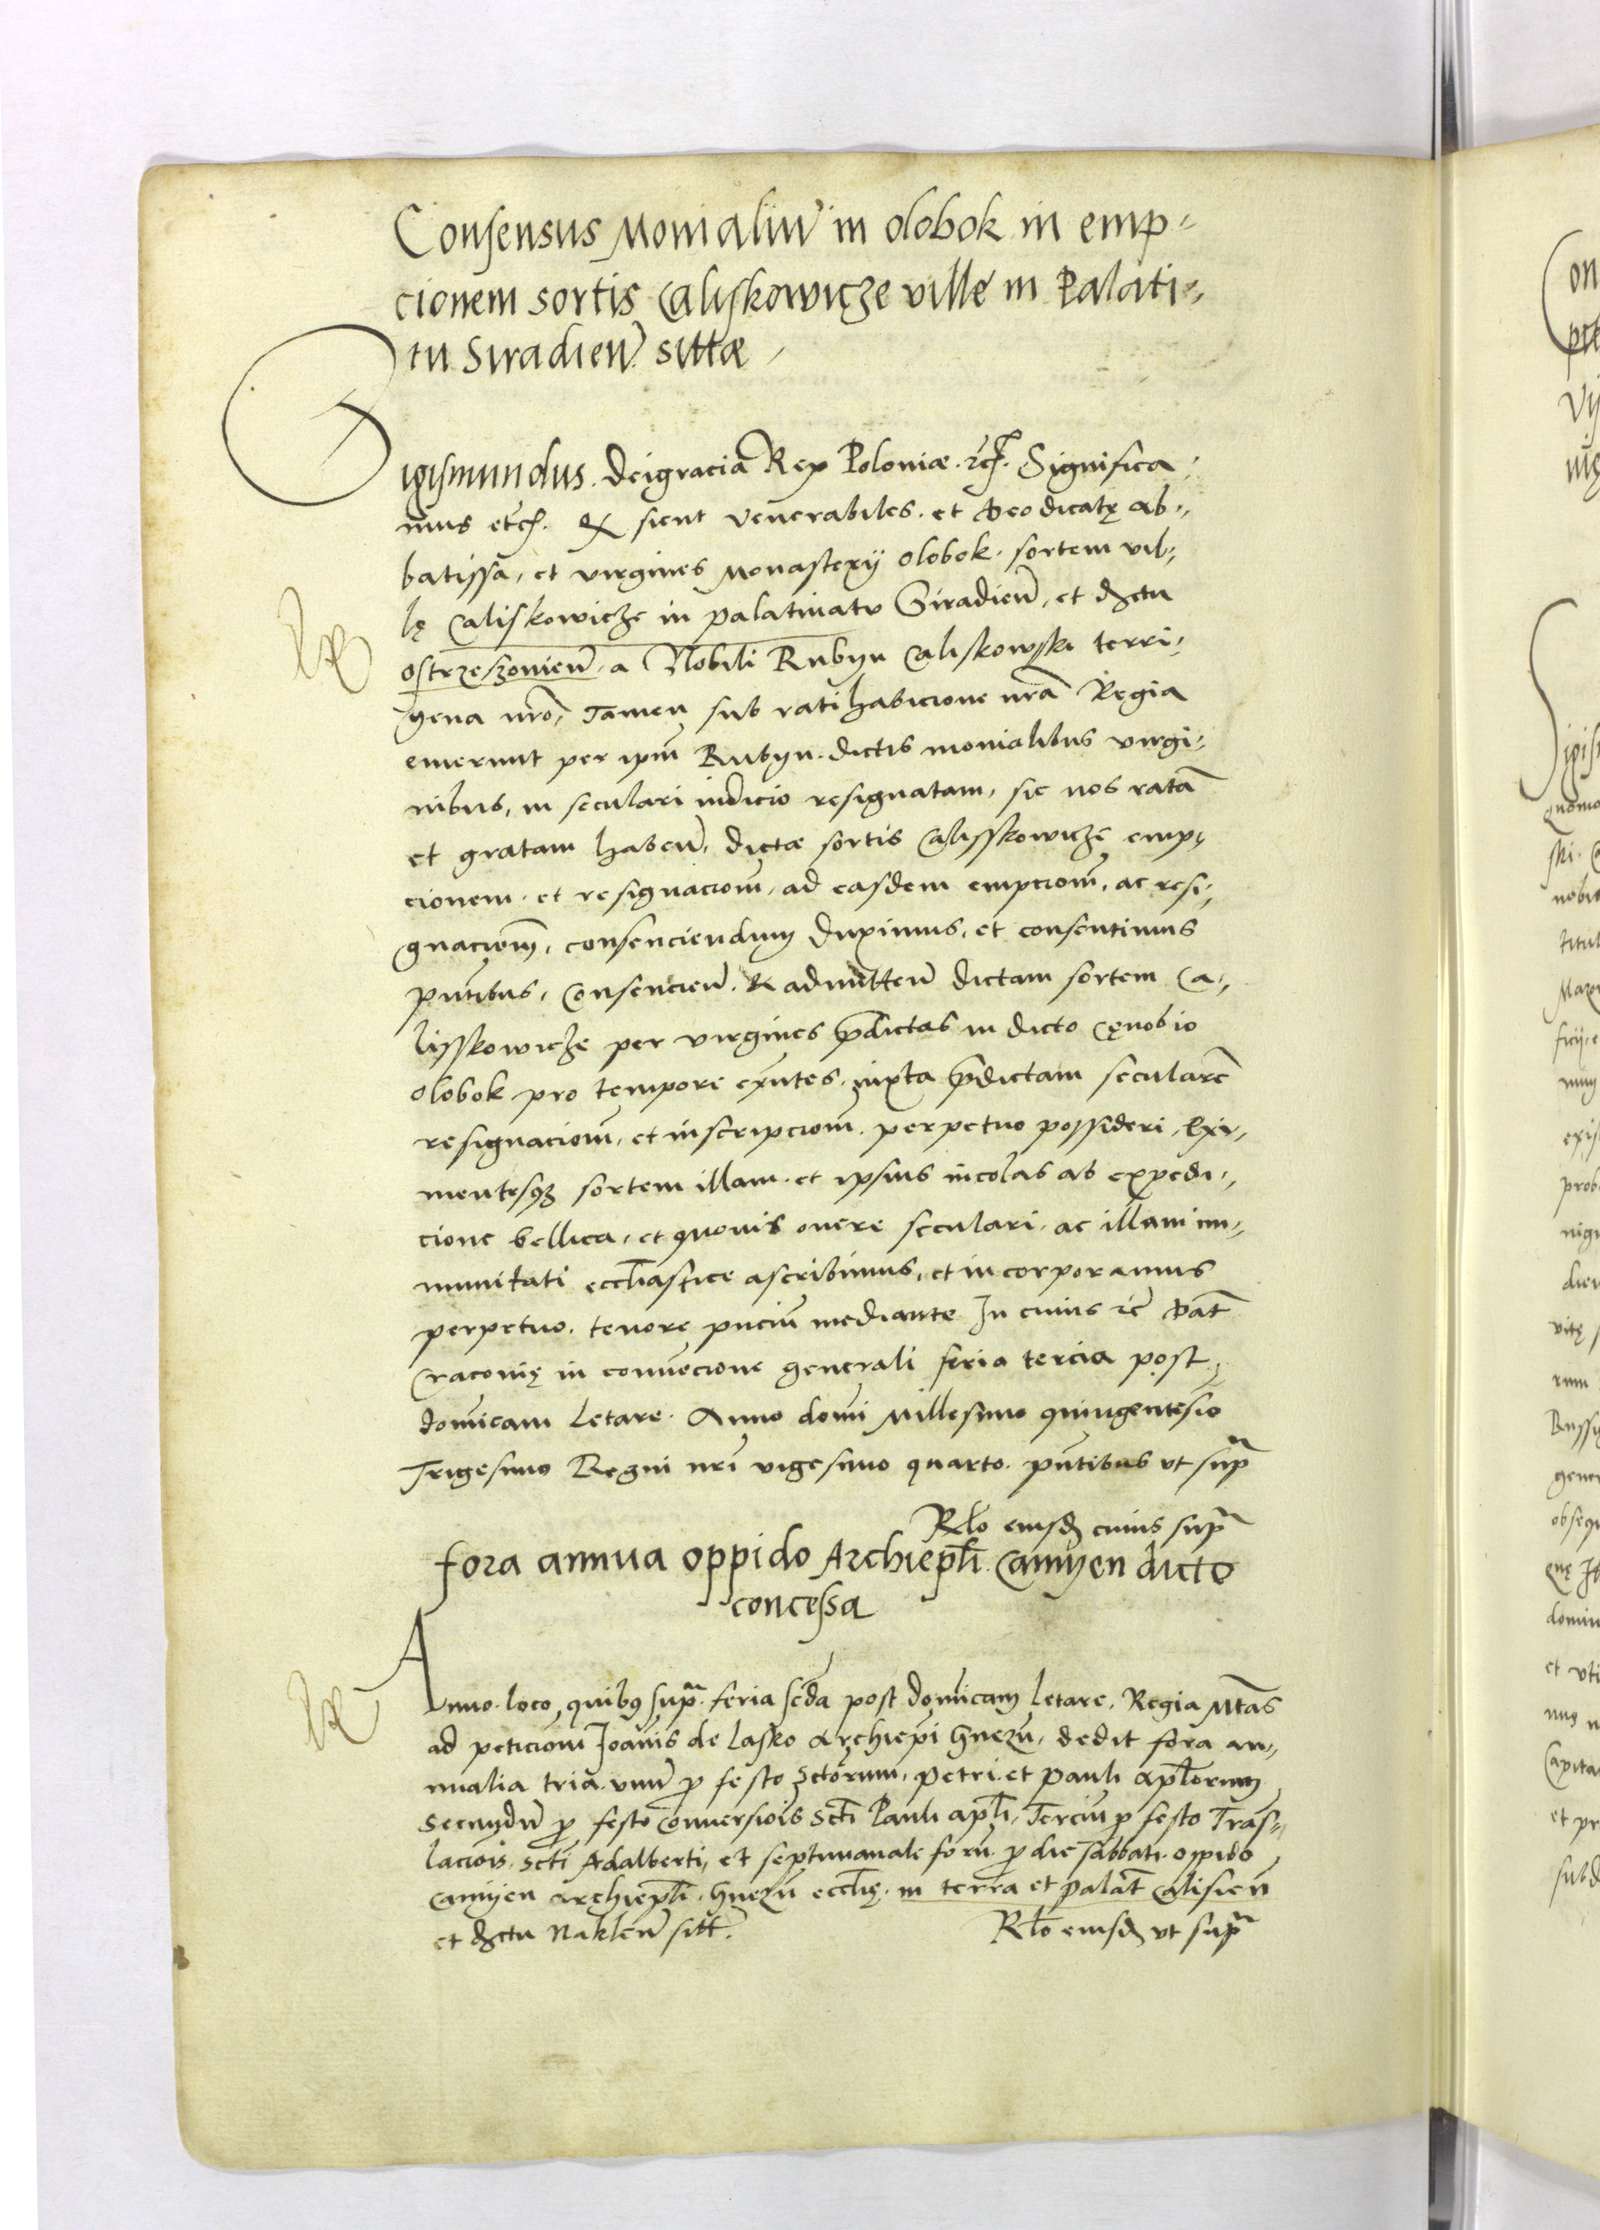 Consensus Monialiũ in olobok in emp-
cionem sortis Caliskowicze ville in Palati-
tu Siradieñ sittæ
Sigismundus. Dei gracia Rex Poloniæ. etc. Significa-
mus etc. Q sicut venerabiles. et Deo dicatę ab-
batissa, et virgines Monasterij olobok. sortem vil-
lę Caliskowicze in palatinatu Siradieñ, et dictu
ostrzeszonieñ. a Nobili Rubyn Caliskowski terri-
gena nr̃o, Tamen sub ratihabicione nr̃a Regia
emerunt per ip̃m Rubyn. dictis monialibus virgi-
nibus, in seculari iudicio resignatam, sic nos ratã
et gratam habeñ, dictæ sortis Calisskowicze emp-
cionem. et resignaciom̃, ad easdem empciom̃, ac resi-
gnaciom̃, consenciendum duximus, et consentimus
pñtibus, Consencieñ. & admitteñ dictam sortem Ca-
lisskowicze per virgines p̃dictas in dicto Cęnobio
olobok pro tempore exñtes. iuxta p̃dictam secularẽ
resignaciom̃, et inscripciom̃. perpetuo possideri, Exi-
mentesq3 sortem illam. et ipsius incolas ab expedi-
cione bellica, et quouis onere seculari. ac illam im-
munitati eccl̃iastice ascribimus, et incorporamus
perpetuo. tenore pñciũ mediante In cuius rẽ Dat̃
Cracouię in conuẽcione generali feria tercia post
domĩcam Letare. Anno domĩ Millesimo quingentesĩo
Trigesimo Regni nr̃i vigesimo quarto. pñtibus vt sup̃
Rl̃o eiusd̃ cuius sup̃
fora annua oppido Archiep̃l̃i. Camyen dicto
concessa
Anno. loco, quibus sup̃. feria sc̃da post domĩcam Letare, Regia Mt̃as
ad peticiom̃ Joannis de Lasko Archiep̃i Gnezñ, dedit fora an-
nualia tria. vnũ p̃ festo Sctõrum, Petri. et Pauli Apl̃orum
Secundũ p̃ festo conuersiõis Sct̃i Pauli apl̃i, Terciũ p̃ festo Trãs-
laciõis. Sct̃i Adalberti, et septimanale forũ p̃ die sabbati. oppido
Camyen archiep̃l̃i. Gnezñ eccl̃ię. in terra et Palat̃ Calisieñ
et dictu Nakleñ sitt̃.
Rl̃o eiusd̃ vt sup̃